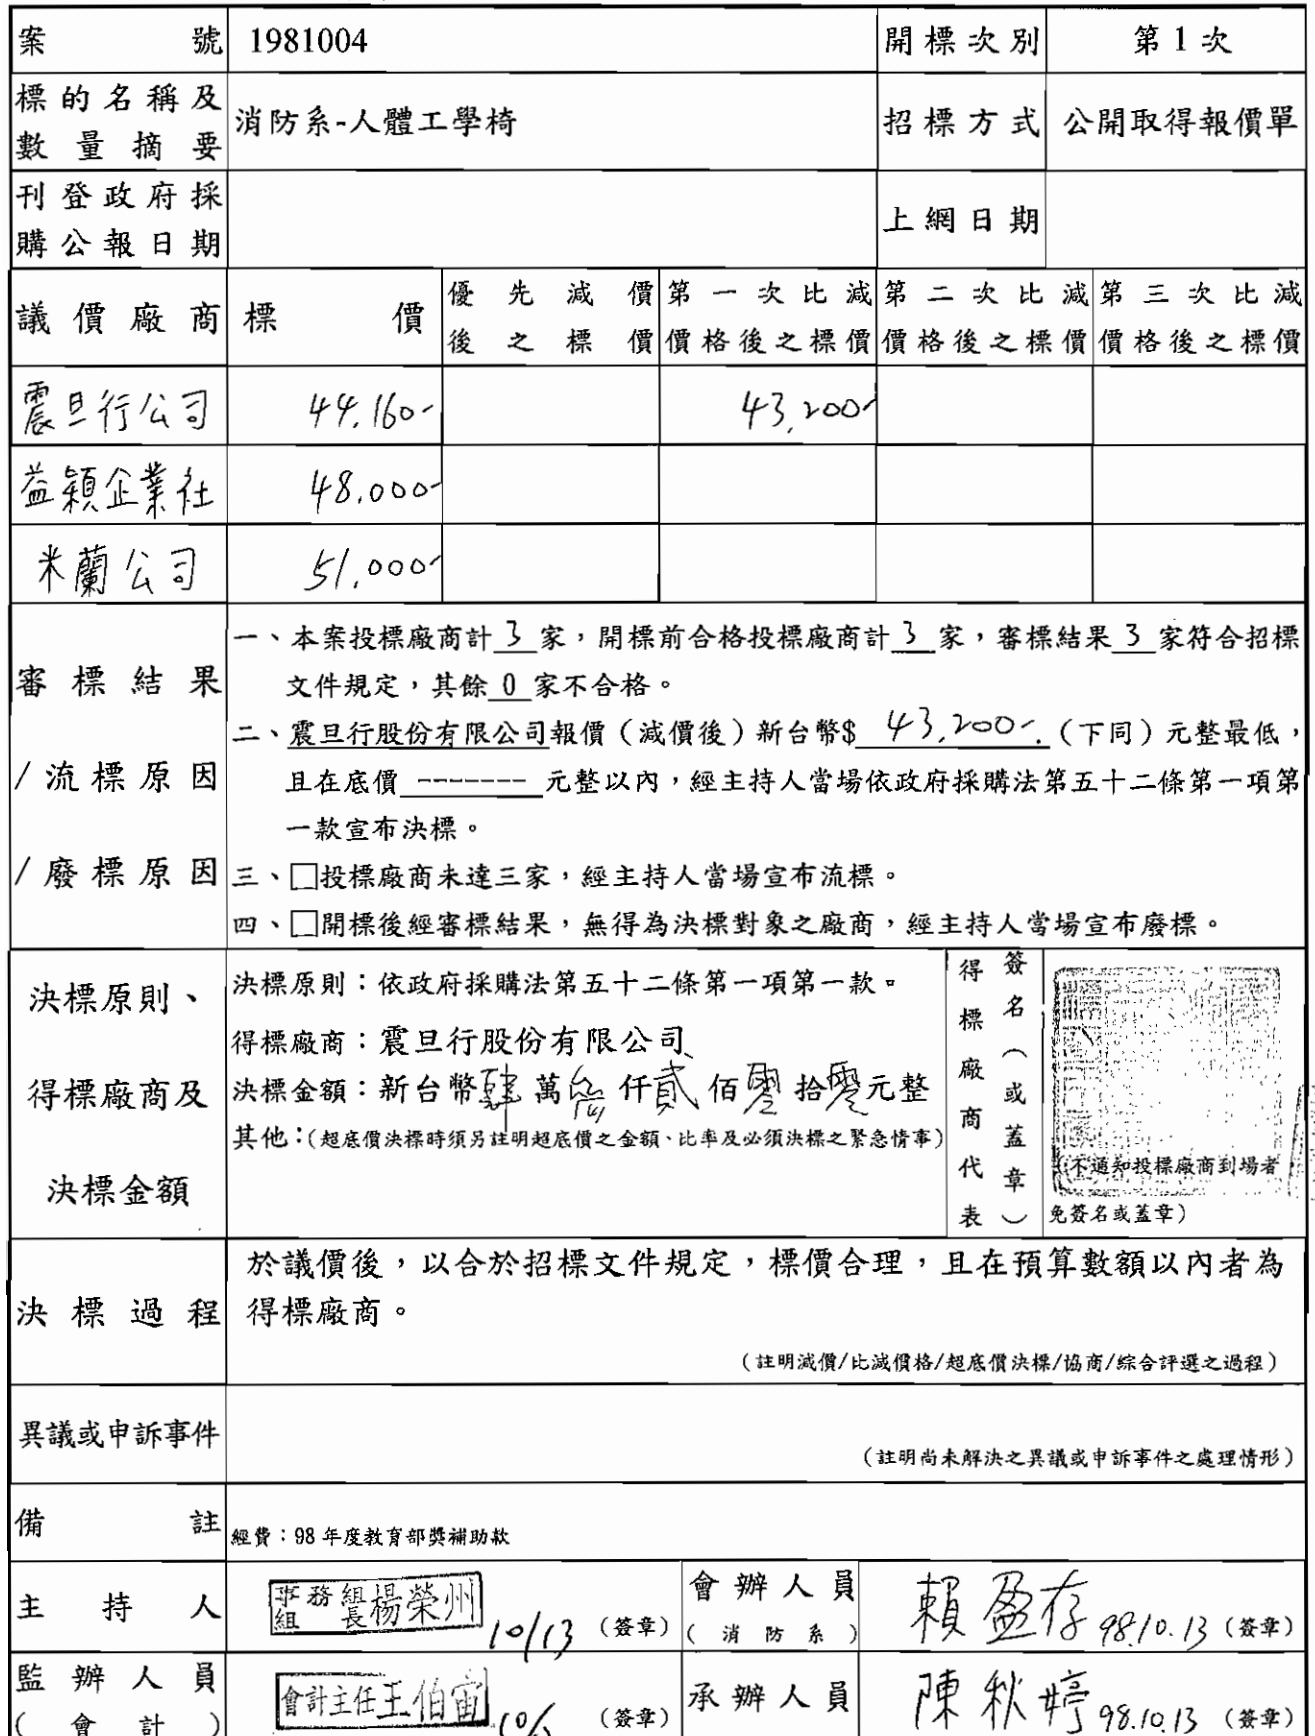 案號 1981004 開標次別 第1次
標的名稱及
數量摘要
消防系-人體工學椅 招標方式 公開取得報價單
刊登政府採
購公報日期
上網日期
議價廠商 標價
優先減價
後之標價
第一次比減
價格後之標價
第二次比減
價格後之標價
第三次比減
價格後之標價
震旦行公司 44,160- 43,200-
益穎企業社 48,000-
米蘭公司 51,000-
審標結果
/流標原因
/廢標原因
一、本案投標廠商計 3 家,開標前合格投標廠商計 3 家,審標結果 3 家符合招標
文件規定,其餘 0 家不合格。
二、震旦行股份有限公司報價(減價後)新台幣$ 43,200-.(下同)元整最低,
且在底價 ------- 元整以內,經主持人當場依政府採購法第五十二條第一項第
一款宣布決標。
三、□投標廠商未達三家,經主持人當場宣布流標。
四、□開標後經審標結果,無得為決標對象之廠商,經主持人當場宣布廢標。
決標原則、
得標廠商及
決標金額
決標原則:依政府採購法第五十二條第一項第一款。
得標廠商:震旦行股份有限公司
決標金額:新台幣肆萬仟貳佰零拾零元整
其他:(超底價決標時須另註明超底價之金額、比率及必須決標之緊急情事)
得標廠商代表
簽名(或蓋章)
(不通知投標廠商到場者
免簽名或蓋章)
決標過程
於議價後,以合於招標文件規定,標價合理,且在預算數額以內者為
得標廠商。
(註明減價/比減價格/超底價決標/協商/綜合評選之過程)
異議或申訴事件
(註明尚未解決之異議或申訴事件之處理情形)
備註
經費:98 年度教育部獎補助款
主持人 事務組組長楊榮州 10/13 (簽章)
會辦人員
(消防系)
賴盈存 98.10.13 (簽章)
監辦人員
(會計)
會計主任王伯宙 (簽章)
承辦人員 陳秋婷 98.10.13 (簽章)